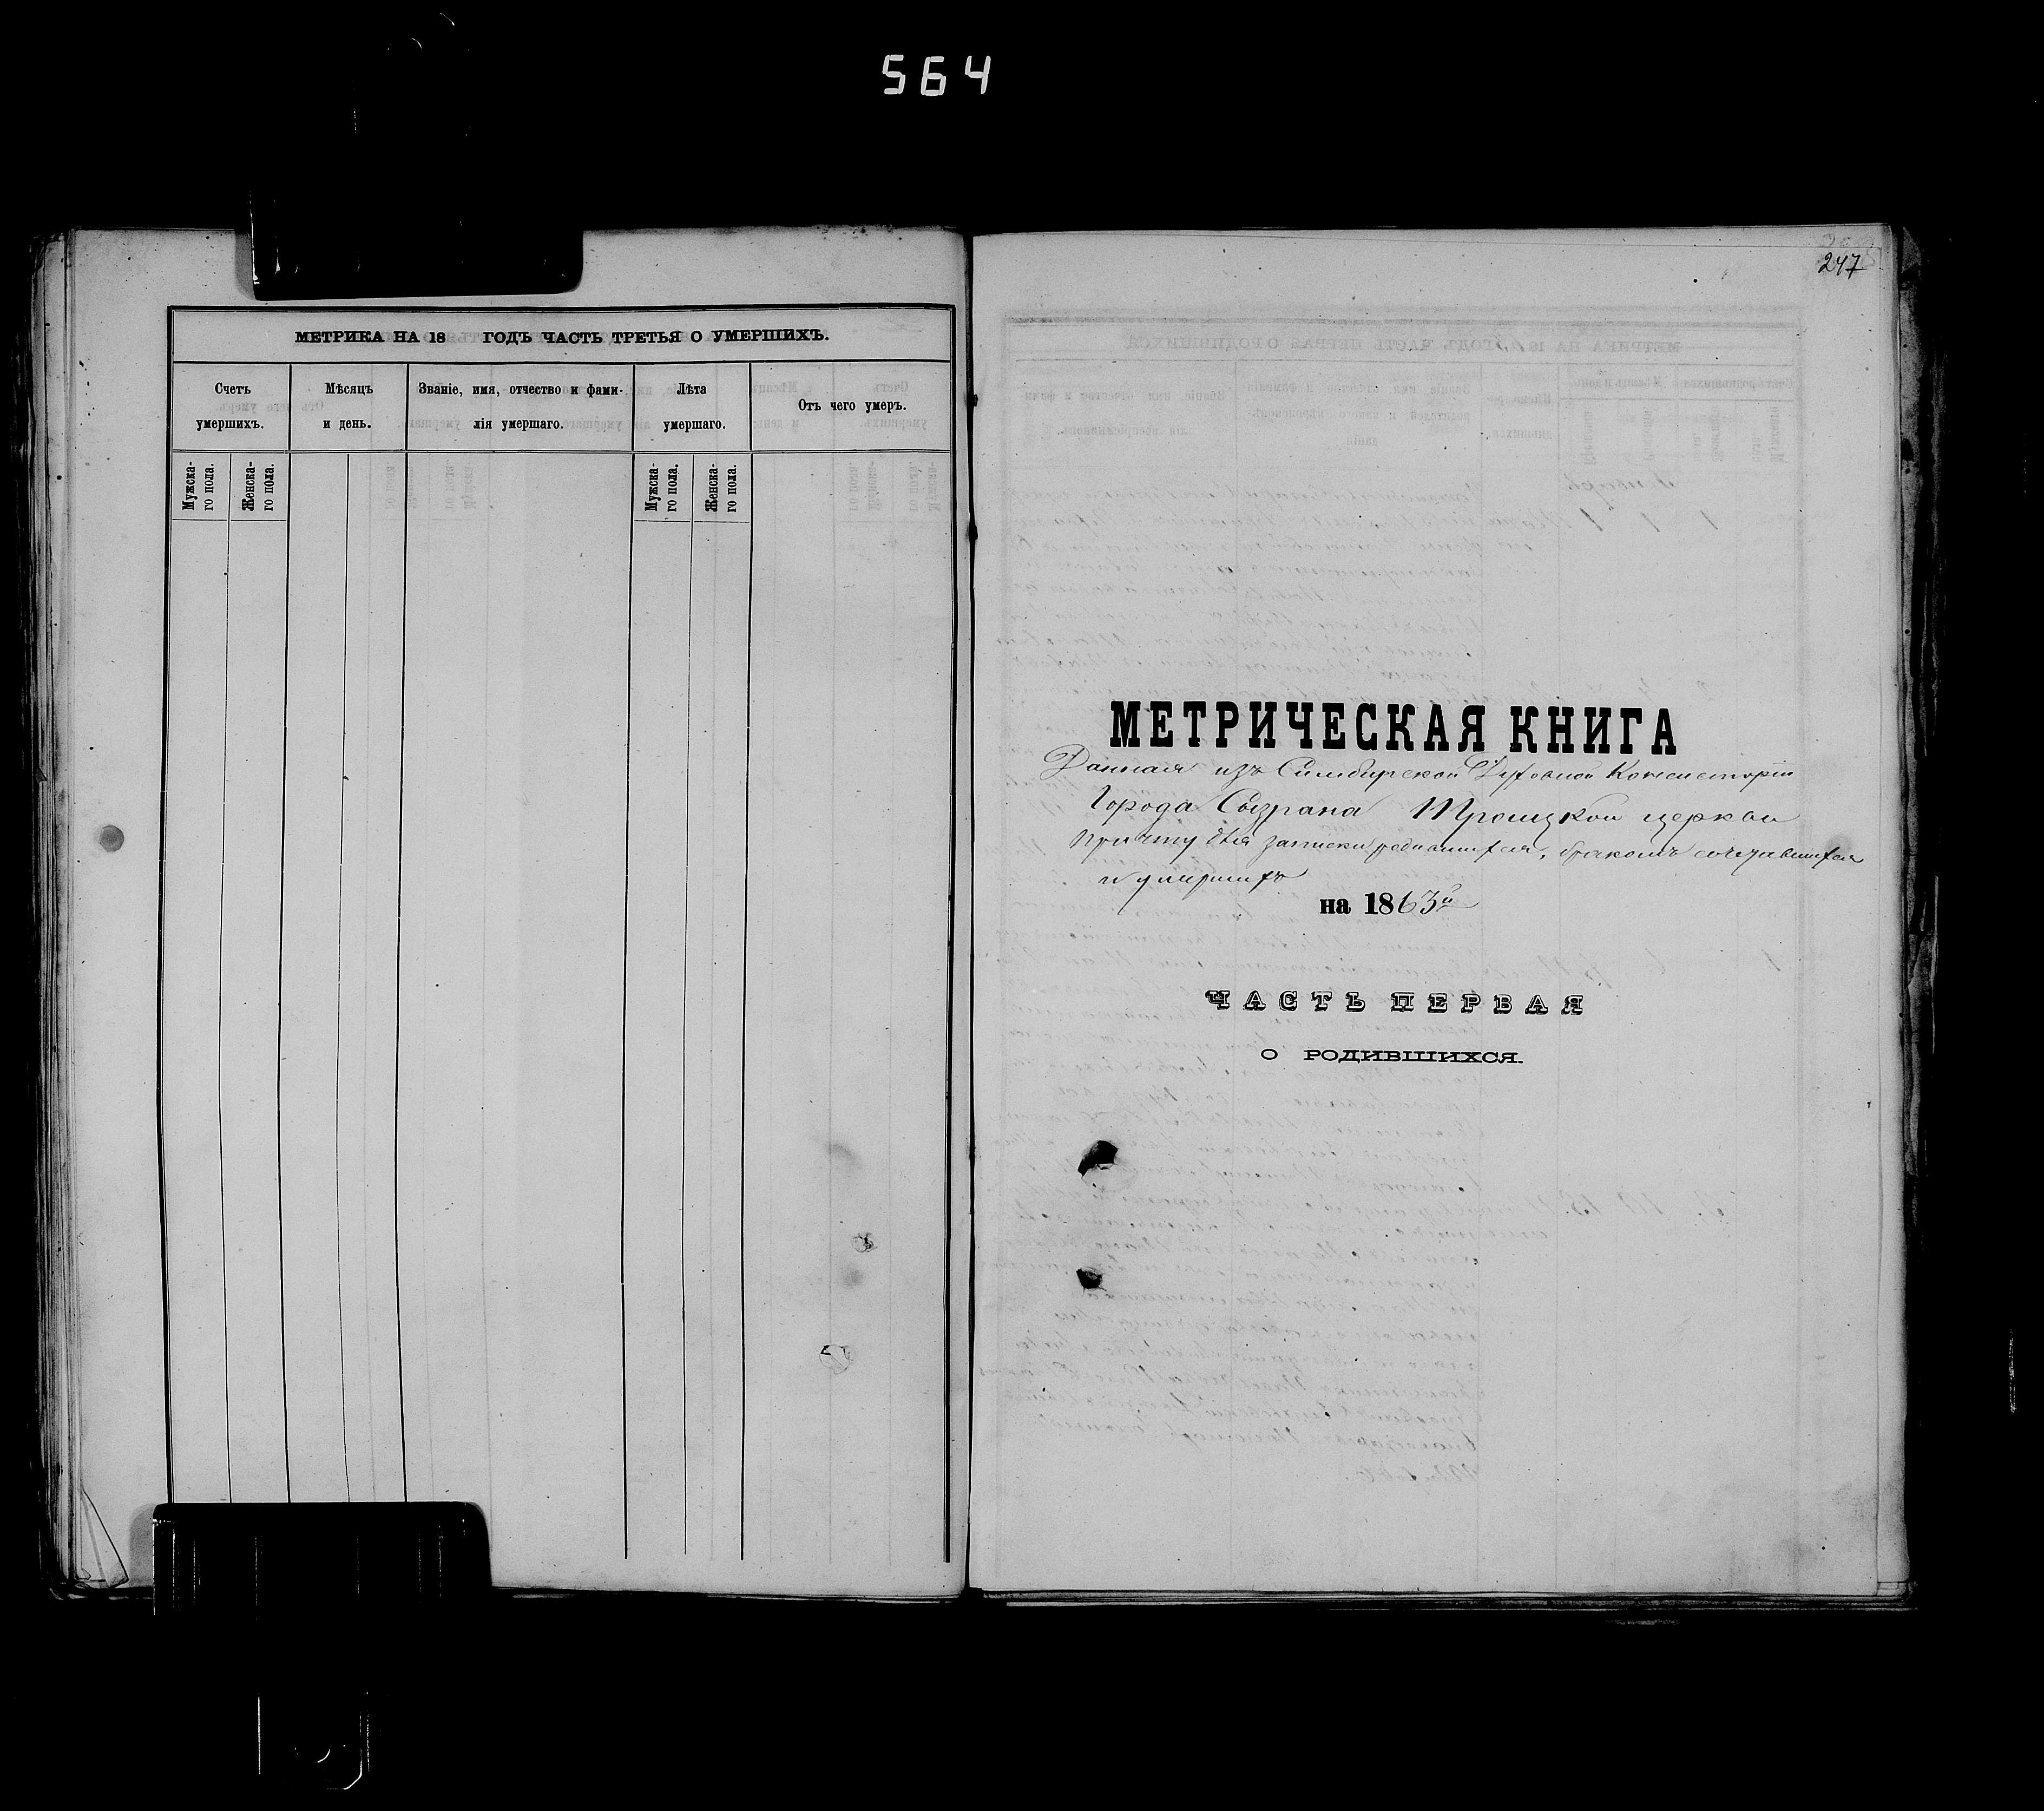 564
МЕТРИКА НА 18 ГОДЪ ЧАСТЬ ТРЕТЬЯ О УМЕРШИХЪ.
Счетъ
умершихъ.
Мѣсяцъ
и день.
Званіе, имя, отчество и фами-
лія умершаго.
Лѣта
умершаго.
Отъ чего умеръ.
Мужска-
го пола.
Женска-
го пола.
Мужска-
го пола.
Женска-
го пола.
247
МЕТРИЧЕСКАЯ КНИГА
Данная изъ Симбирской Духовной Консисторіи
Города Сызрана Троицкой церкви
причту для записки родившихся, бракомъ сочетавшихся
и умершихъ
на 1863й
ЧАСТЬ ПЕРВАЯ
О РОДИВШИХСЯ.